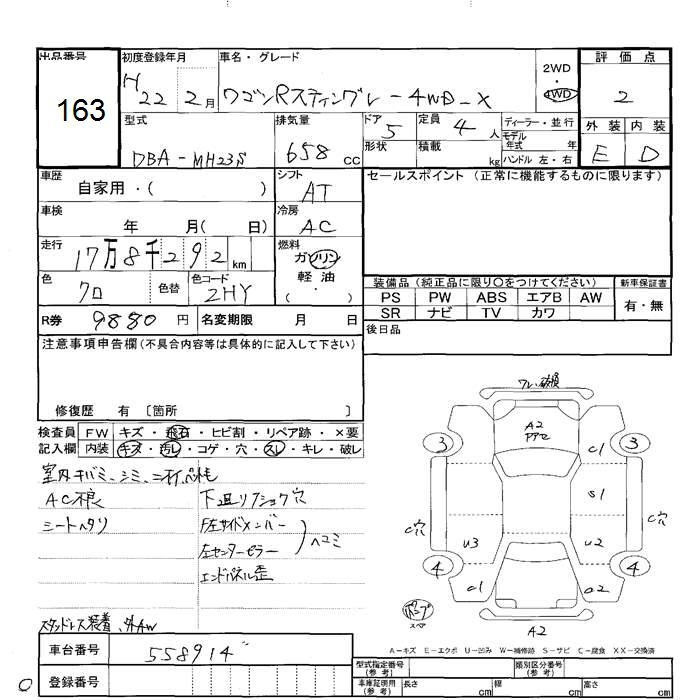 出品番号 初度登録年月 車名・グレード 2WD・4WD 評価点
163 H22 2月 ワゴンRスティングレー 4WD X 2
型式 排気量 ドア 定員 ディーラー・並行 外装 内装
DBA-MH23S 658cc 5 4人 モデル年式 年 E D
形状 積載 kg ハンドル 左・右
車歴 自家用・( ) シフト AT セールスポイント(正常に機能するものに限ります)
車検 年 月( 日) 冷房 AC
走行 17万8千292km 燃料 ガソリン
軽油
・( )
色 クロ 色替 色コード ZHY 装備品(純正品に限り○をつけてください) 新車保証書
PS PW ABS エアB AW 有・無
SR ナビ TV カワ
R券 9880円 名変期限 月 日 後日品
注意事項申告欄(不具合内容等は具体的に記入して下さい)
修復歴 有 〔箇所 〕
検査員 FW キズ・飛石・ヒビ割・リペア跡・×要
記入欄 内装 キズ・汚レ・コゲ・穴・スレ・キレ・破レ
室内キバミ、シミ、ニオイ、
AC不良 下廻り 穴
シートヘタリ F左サイドメンバー
左センターピラー ヘコミ
エンドパネル歪
スタッドレス装着、外AW
車台番号 558914
登録番号
ワレ、破損
A2
3 C1 3
S1
C穴 C穴
U3 U2
4 4
C1 C2
スペア A2
A-キズ E-エクボ U-凹み W-補修跡 S-サビ C-腐食 XX-交換済
型式指定番号(参考) 類別区分番号(参考)
車庫証明用(参考) 長さ cm 幅 cm 高さ cm